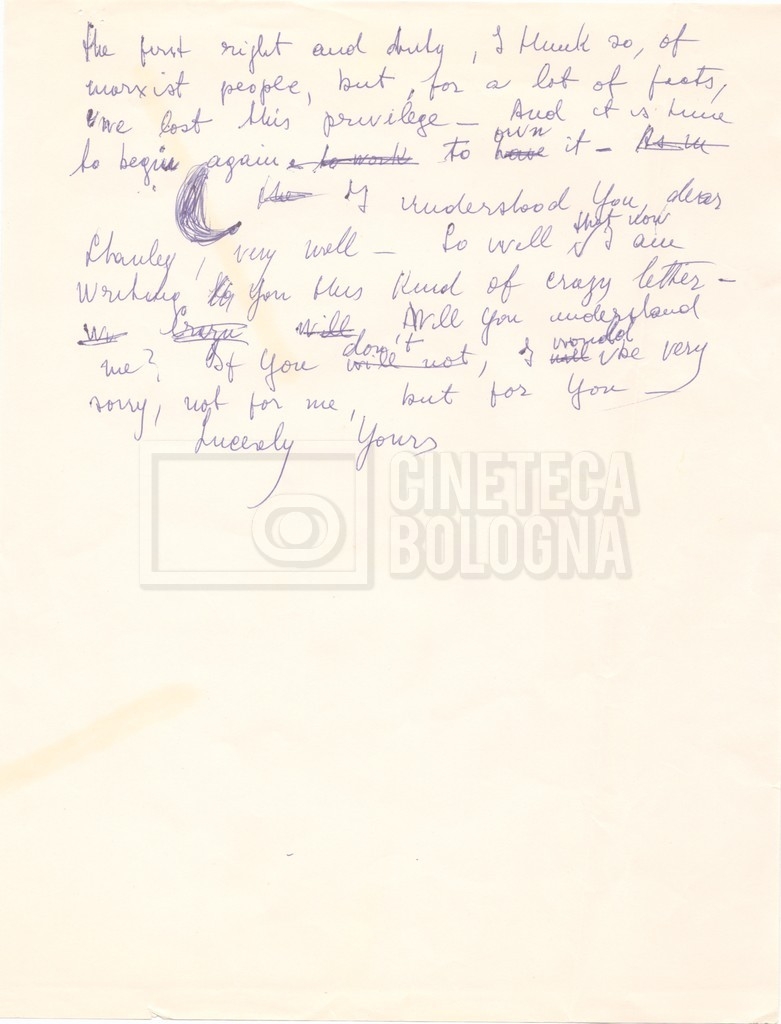 the first right and duty, I think so, of
marxist people, but, for a lot of facts,
we lost this privilege – And it is time
to begin again to work to own have it – As in
the I understood You, dear
Stanley, very well – So well that now I am
writing to You this kind of crazy letter –
Crazy will Will You understand
me? If You don't will not, I would will be very
sorry, not for me, but for You –
Sincerly Yours
CINETECA
BOLOGNA